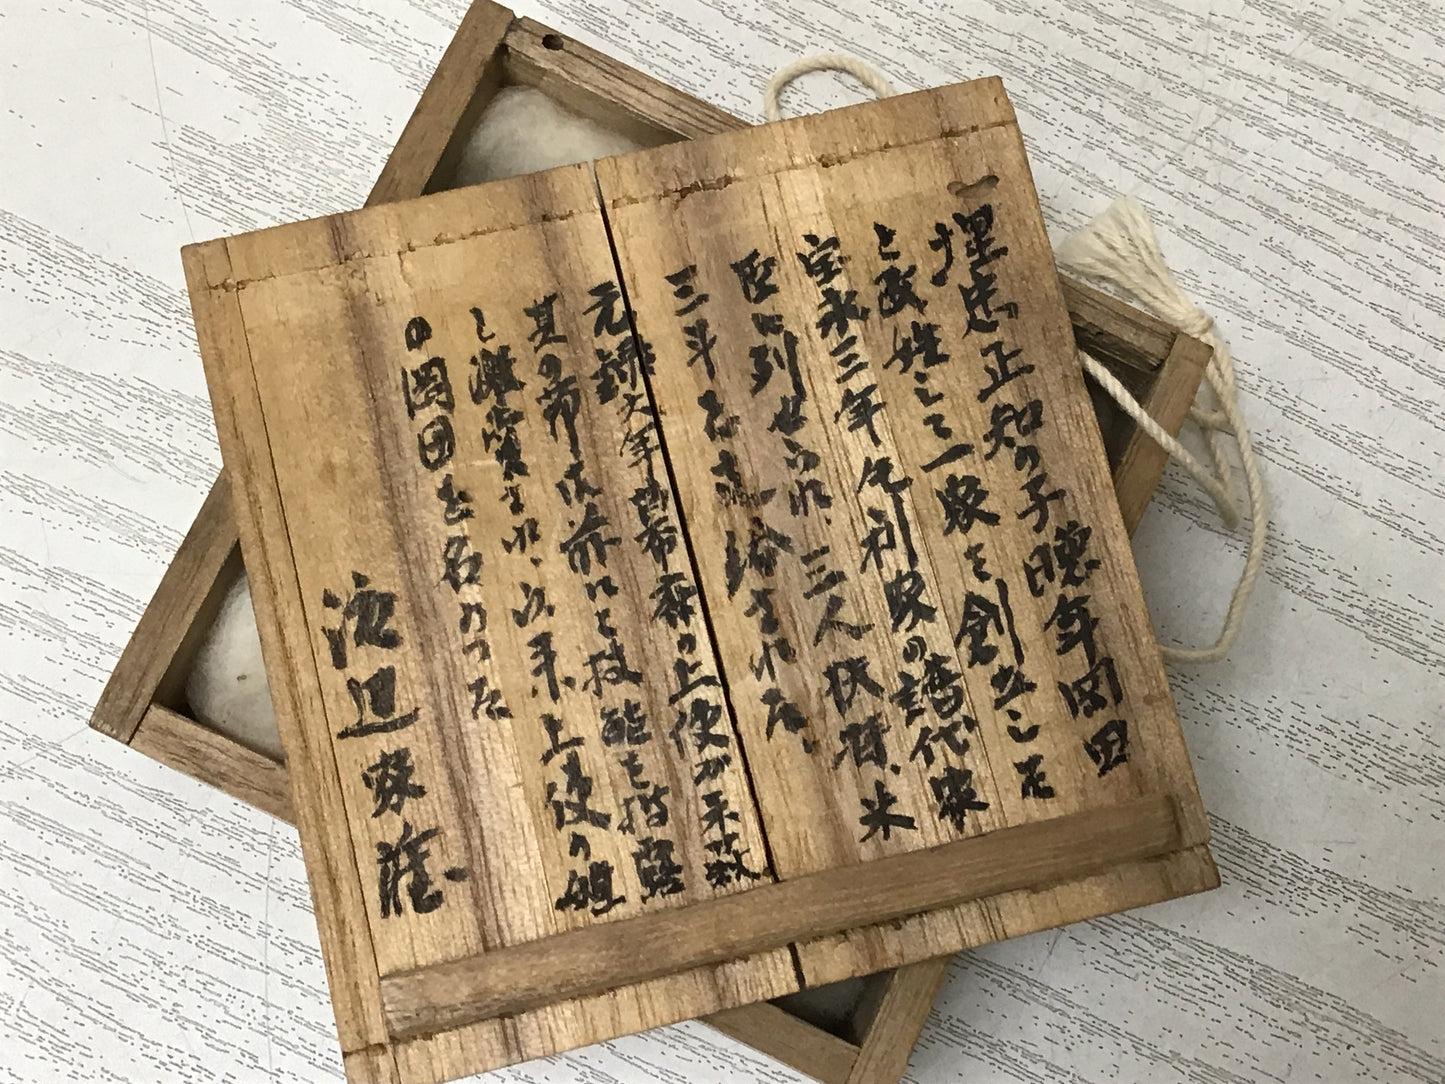 一埋忠正知の子晩年岡田
と改姓して一家を創立した
宝永三年毛利家の譜代家
臣に列せられ、三人扶持、米
三斗を給された、
元禄六年幕府の上使が来萩
其の節御前にて技能を披露
し鑑賞され、以来上使の
の岡田を名のった
渡辺家蔵